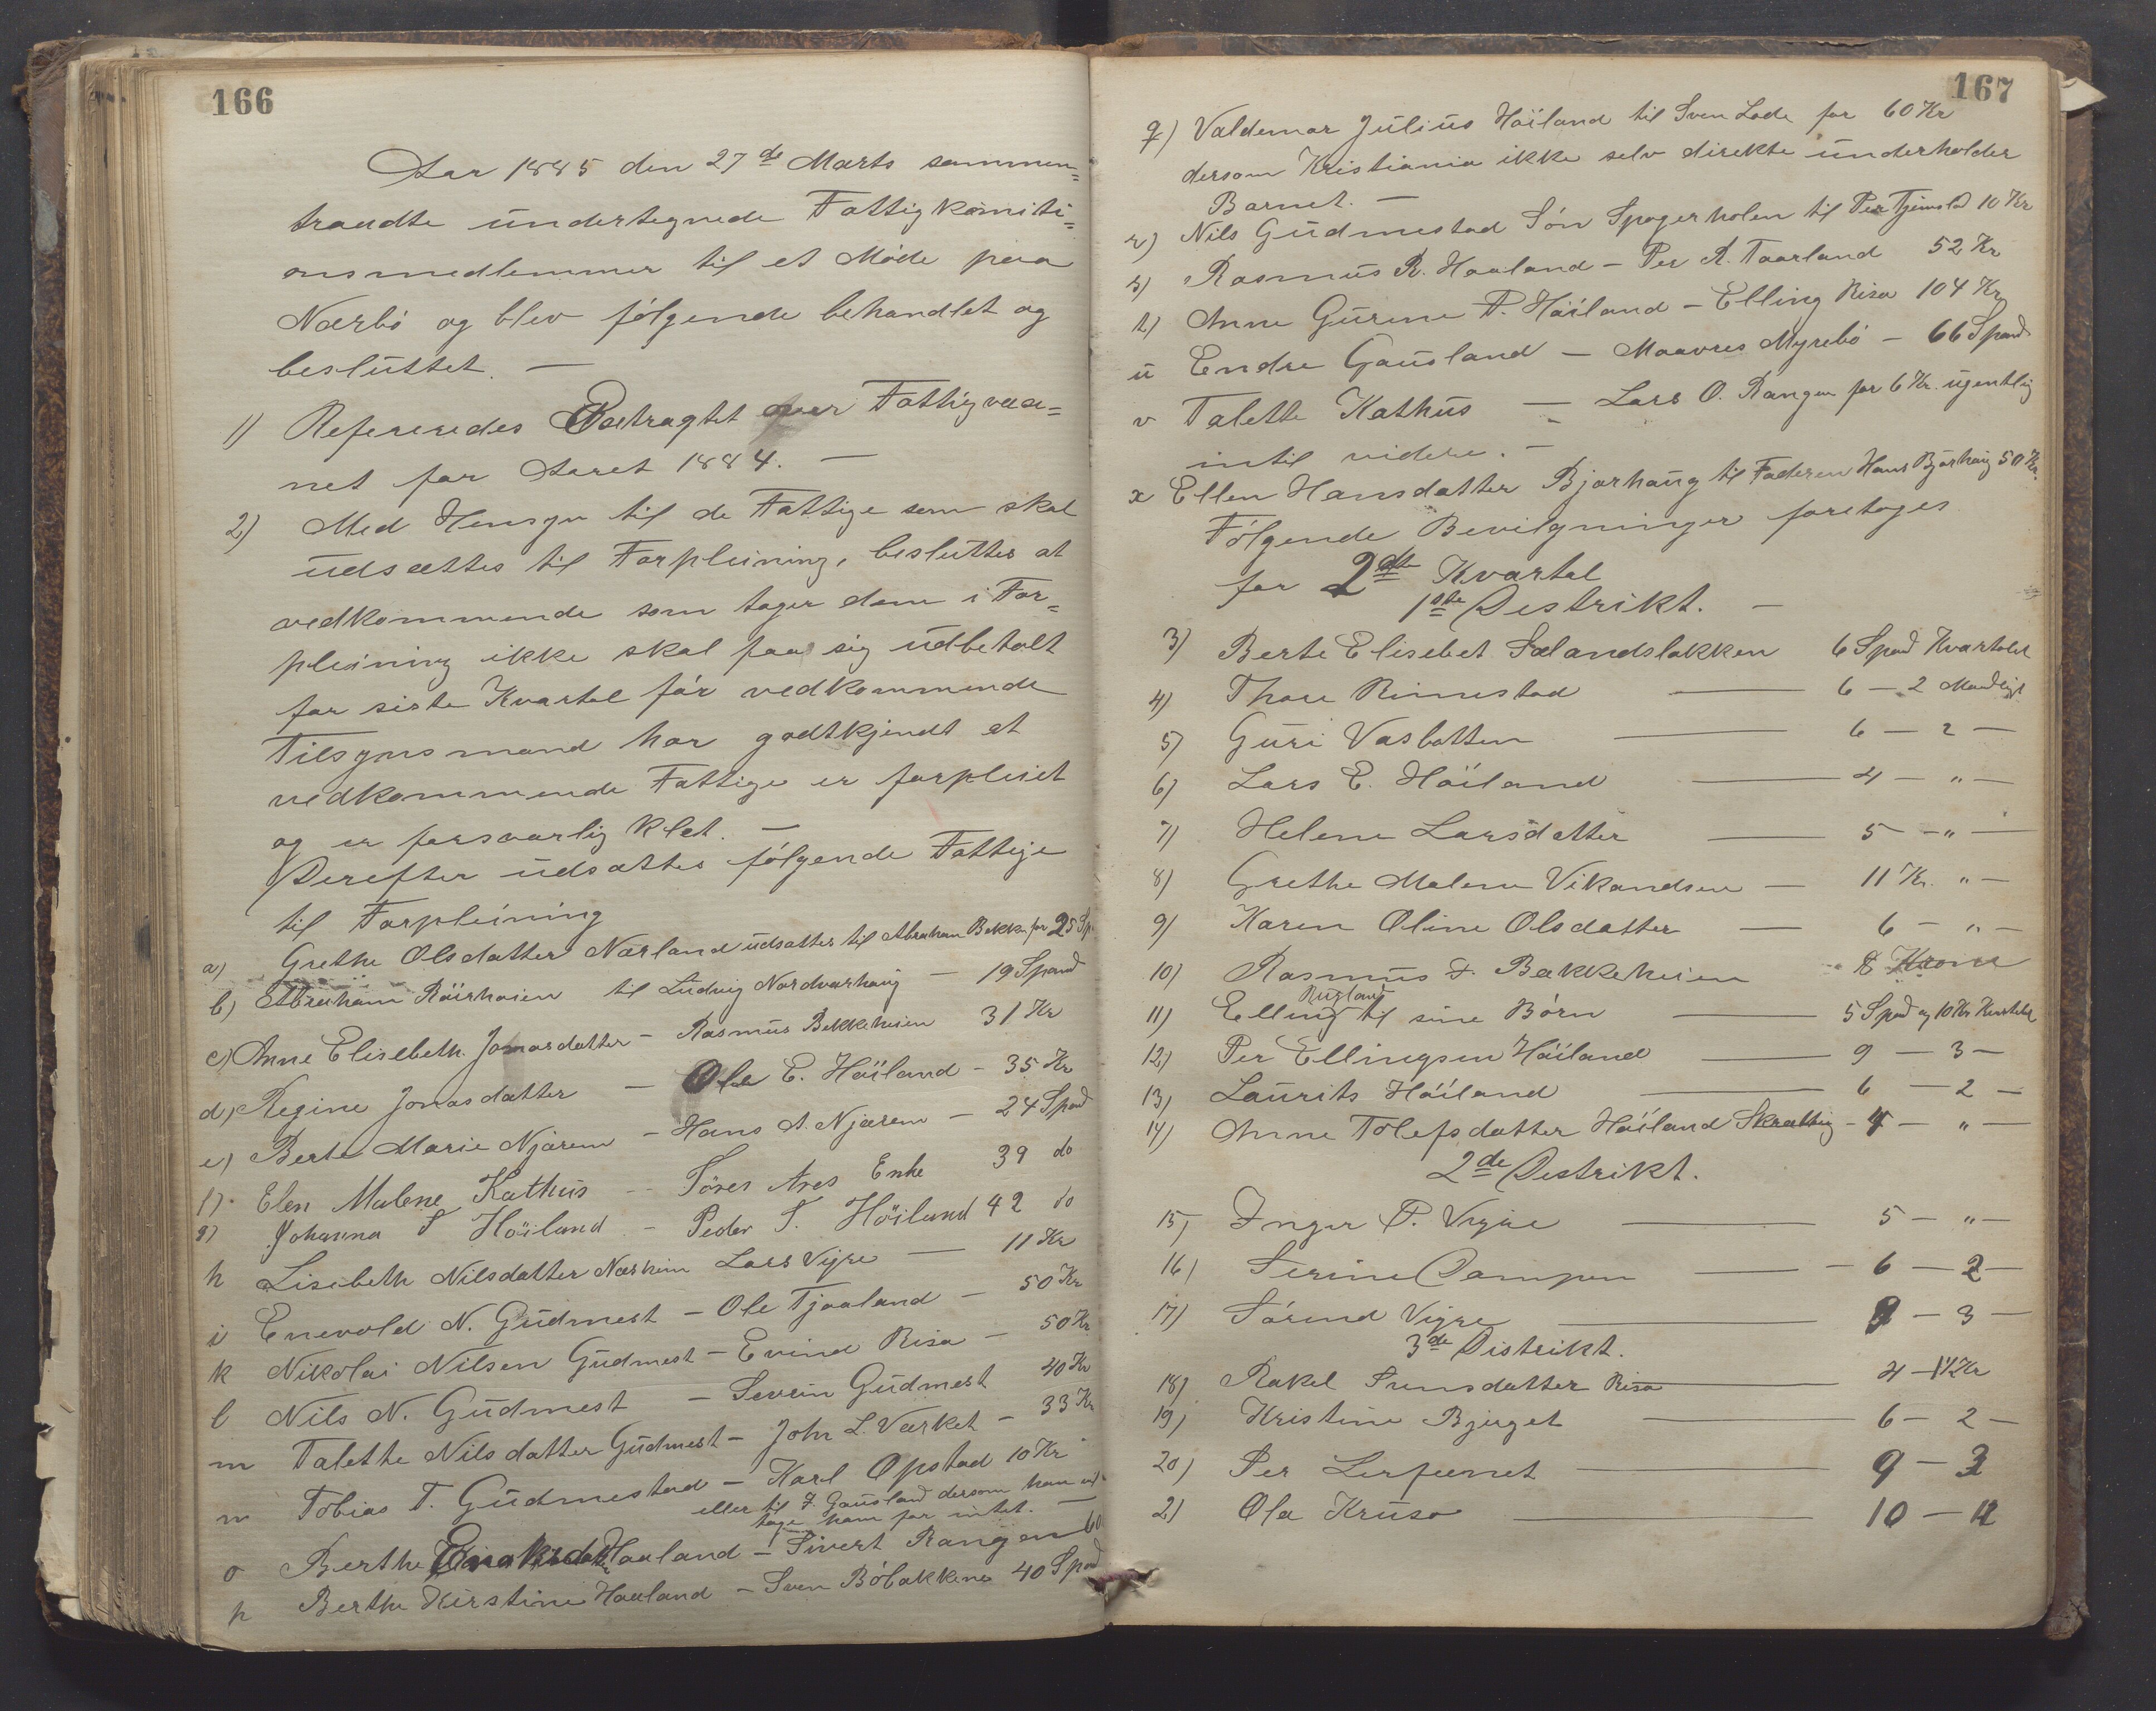 166
Aar 1885 den 27de Marts sammen=
traadte undertegnede Fattigkomiti=
onsmedlemmer til et Möde paa
Nærbö og blev fölgende behandlet og
besluttet. —
1) Refereredes Betragtet over Fattigvæse=
net for Aaret 1884. —
2) Med Hensyn til de Fattige som skal
udsættes til Forpleining, besluttes at
vedkommende som tager dem i For=
pleining ikke skal faa sig udbetalt
for siste Kvartal för vedkommende
Tilsynsmand har godtkjendt at
vedkommende Fattige er forpleiet
og er forsvarlig klet. —
Derefter udsættes fölgende Fattige
til Forpleining
a) Grethe Olsdatter Nærland udsættes til Abraham Bakke for 25 Sp.
b) Abraham Röirhoien til Ludvig Nordvarhaug — 19 Spand
c) Anne Elisebeth Jonasdatter — Rasmus Bekkeheien 31 Kr
d) Regine Jonasdatter — Ole E. Höiland — 35 Kr
e) Berte Marie Njærem — Hans A. Njærem — 24 Spad
f) Elen Malene Kathus — Sören Ares Enke 39 do
g) Johanna T Höiland — Peder T. Höiland 42 do
h Lisebeth Nilsdatter Nærheim Lars Vigre — 11 Kr
i Enevold N. Gudmest — Ole Tjaaland — 50 Kr
k Nikolai Nilsen Gudmest — Evind Risa — 50 Kr
l Nils N. Gudmest — Severin Gudmest 40 Kr
m Talette Nilsdatter Gudmest — John L. Varket — 33 Kr
n Tobias T. Gudmestad — Karl Opstad 10 Kr
eller til J. Gausland dersom han vil
tage ham for intet. —
o Berthe Haaland — Sivert Rangen 60
p Berthe Kirstine Haaland — Sven Böbakkene 40 Spad
167
q) Valdemar Julius Höiland til Sven Lode for 60 Kr
dersom Kristiania ikke selv direkte underholder
Barnet. —
r) Nils Gudmestad Sön Spagerholen til Per Tjemsld 10 Kr
s) Rasmus R. Haaland — Per A. Taarland 52 Kr
t) Anne Gurine T. Höiland — Elling Risa 104 Kr
u Endre Gausland — Maavres Myrebö — 66 Spand
v Talette Kathus — Lars O. Rangen for 6 Kr. ugentlig
intil videre. —
x Ellen Hansdatter Bjorhaug til Faderen Hans Bjorhaug 50 Kr.
Fölgende Bevilgninger foretoges
for 2det Kvartal
1ste Destrikt. —
3) Berte Elisebet Sælandsbakken 6 Spad Kvartalet
4) Thore Rimestad — 6 — 2 Maadligt
5) Guri Vasbotten — 6 — 2 —
6) Lars E. Höiland — 4 — " —
7) Helene Larsdatter — 5 — " —
8) Grethe Malene Vikandsen — 11 Kr. " —
9) Karen Oline Olsdatter — 6 — " —
10) Rasmus J. Bakkeheien 8 Krone
11) Elling Rugland til sine Börn — 5 Spad og 10 Kr Kvartalet
12) Per Ellingsen Höiland — 9 — 3 —
13) Laurits Höiland — 6 — 2 —
14) Anne Tolefsdatter Höiland Skrætting — 4 — " —
2de Destrikt.
15) Inger P. Vigre — 5 — " —
16) Serine Campen — 6 — 2 —
17) Sörend Vigre — 9 — 3 —
3de Distrikt.
18) Rakel Svensdatter Risa — 4 — 12 Kr
19) Kristine Bjerget — 6 — 2 —
20) Per Lerfeernet — 9 — 3
21 Ola Kruso — 10 — 4